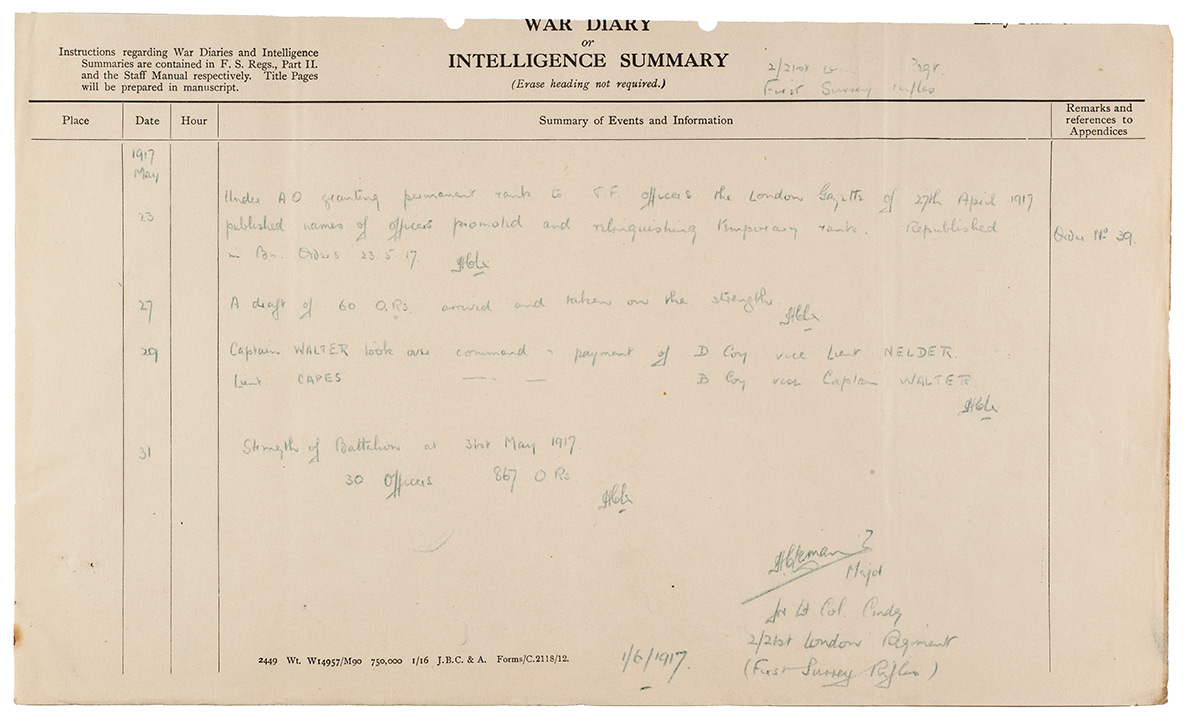 WAR DIARY
or
INTELLIGENCE SUMMARY
(Erase heading not required.)
Instructions regarding War Diaries and Intelligence
Summaries are contained in F. S. Regs., Part II.
and the Staff Manual respectively. Title Pages
will be prepared in manuscript.
2/21st
First Surrey Rifles
Place Date Hour Summary of Events and Information Remarks and references to Appendices
1917
May
23 Under A.O. granting permanent rank to T.F. officers the London Gazette of 27th April 1917
published names of officers promoted and relinquishing temporary rank. Republished Order No 39.
in Bn. Orders 23.5.17.
27 A draft of 60 O.Rs. arrived and taken on the strength.
29 Captain WALTER took over command payment of D Coy vice Lieut NELDER.
Lieut. CAPES — . — B Coy vice Captain WALTER.
31 Strength of Battalion at 31st May 1917.
30 Officers 867 O.Rs
Major
for Lt Col. Cmdg
2/21st London Regiment
(First Surrey Rifles)
1/6/1917.
2449 Wt. W14957/M90 750,000 1/16 J.B.C. & A. Forms/C.2118/12.